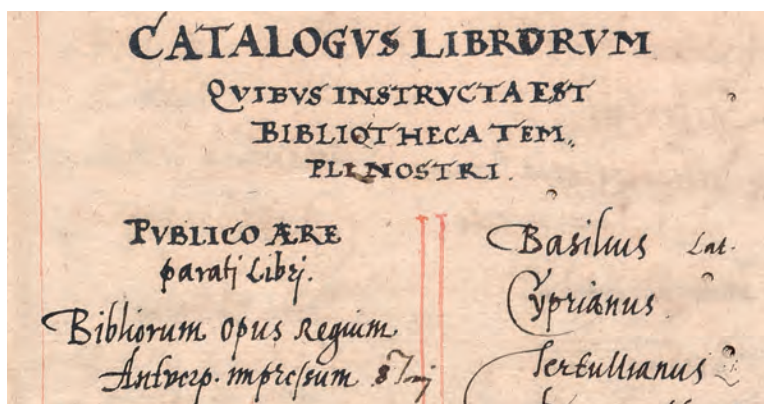 CATALOGVS LIBRORVM
QVIBVS INSTRVCTA EST
BIBLIOTHECA TEM,
PLI NOSTRI.
PVBLICO ÆRE
parati Libri.
Bibliorum opus Regium
Antverp. impressum
Basilius Lat.
Cyprianus
Tertullianus